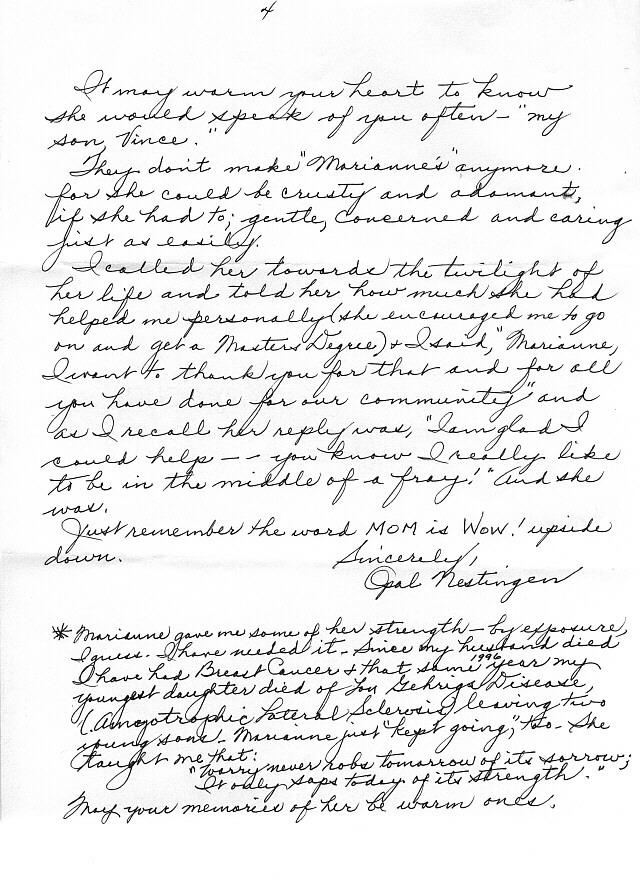 4
It may warm your heart to know
she would speak of you often - "my
son, Vince."
They don't make "Marianne's" anymore.
for she could be crusty and adamant,
if she had to; gentle, concerned and caring
just as easily.
I called her towards the twilight of
her life and told her how much she had
helped me personally (she encouraged me to go
on and get a Masters Degree) + I said, "Marianne,
I want to thank you for that and for all
you have done for our community" and
as I recall her reply was, "I am glad I
could help -- you know I really like
to be in the middle of a fray!" And she
was.
Just remember the word MOM is WOW! upside
down.
Sincerely,
Opal Nestingen
* Marianne gave me some of her strength - by exposure,
I guess. I have needed it. Since my husband died
I have had Breast Cancer + that same 1996 year my
youngest daughter died of Lou Gehrigs Disease,
(Amyotrophic Lateral Sclerosis) leaving two
young sons. Marianne just "kept going," too. She
taught me that:
"Worry never robs tomorrow of its sorrow;
It only saps today of its strength."
May your memories of her be warm ones.